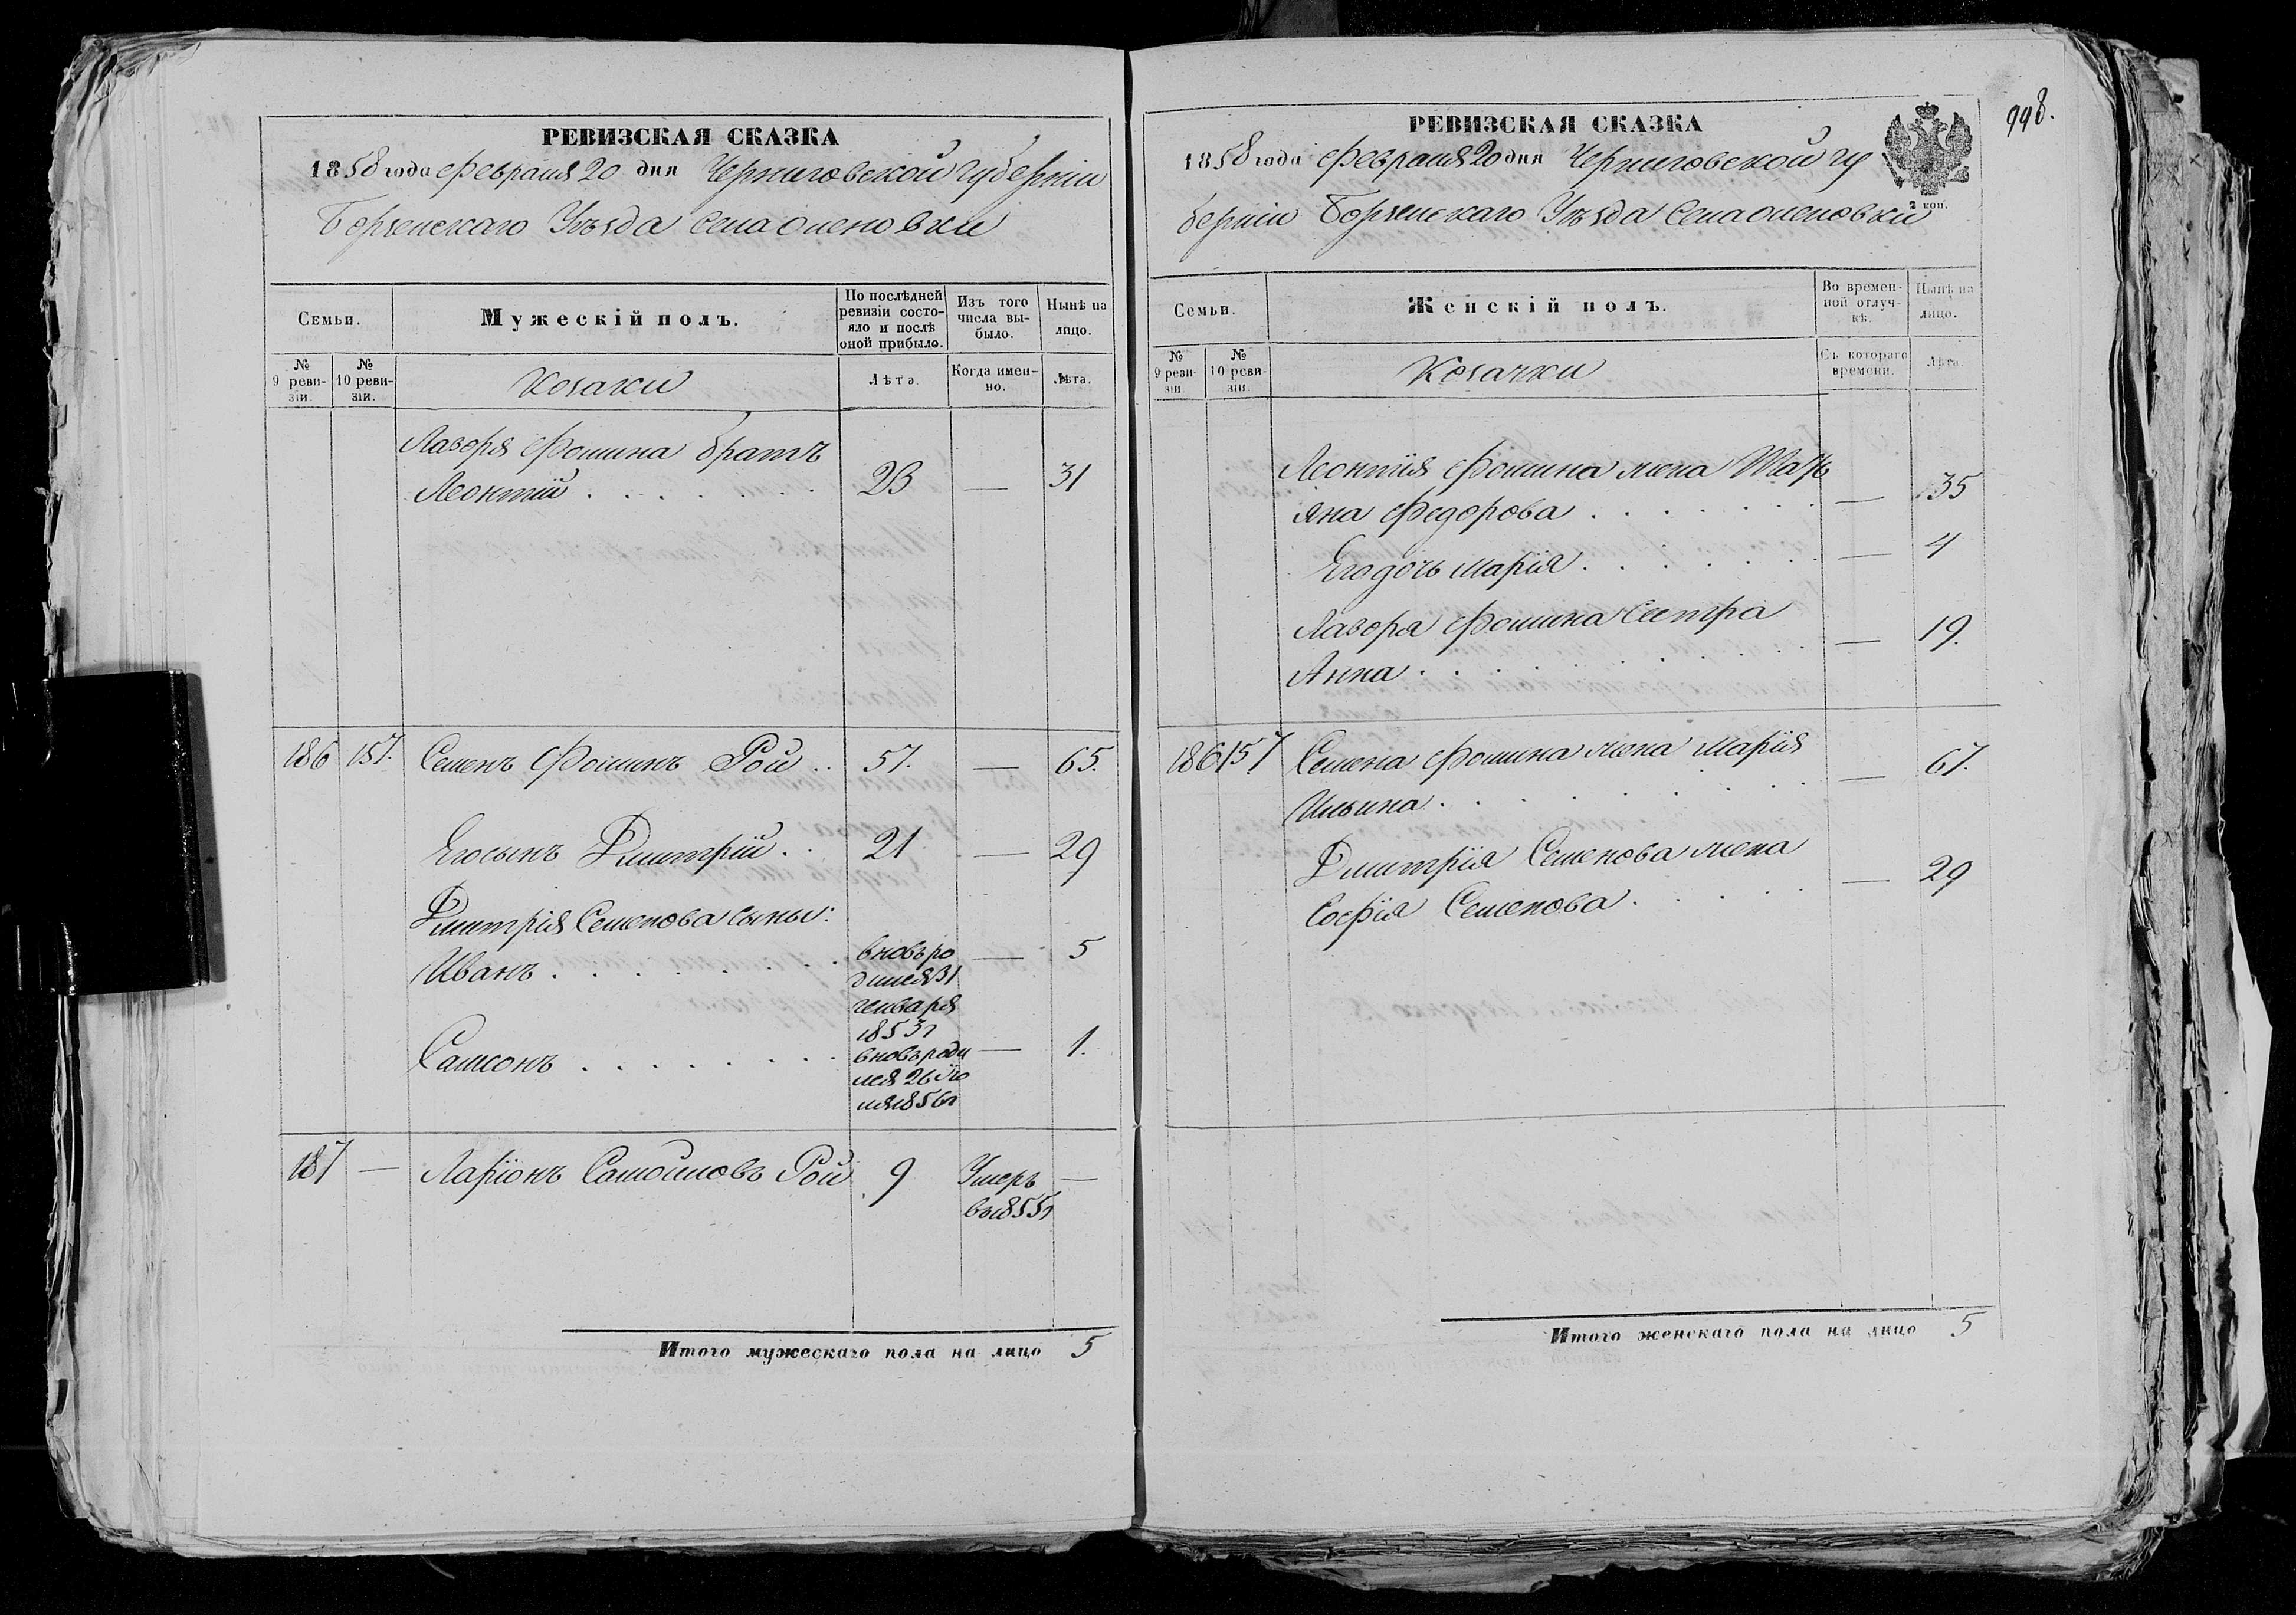 РЕВИЗСКАЯ СКАЗКА
1858 года февраля 20 дня Черниговской губерніи
Борзенскаго Уѣзда села Оленовки
Семьи.
Мужескій полъ.
По послѣдней ревизіи состояло и послѣ оной прибыло.
Изъ того числа выбыло.
Нынѣ на лицо.
№ 9 ревизіи.
№ 10 ревизіи.
Козаки
Лѣта.
Когда именно.
Лѣта.
Лазоря Фомина братъ
Леонтій . . . . . . . 23 — 31
186 157. Семенъ Фоминъ Рой . . 57. — 65.
Его сынъ Дмитрій . . 21 — 29
Дмитрія Семенова сыны:
Иванъ . . . . . . . . вновь ро — 5
дился 31
генваря
1853г
Самсонъ . . . . . . . . вновь роди — 1.
лся 26 Iю
ля 1856г
187 — Ларіонъ Самойловъ Рой 9 Умеръ —
въ 1855г
Итого мужескаго пола на лицо 5
998.
РЕВИЗСКАЯ СКАЗКА
1858 года февраля 20 дня Черниговской гу
берніи Борзенскаго Уѣзда села Оленовки
2 коп.
Семьи.
Женскій полъ.
Во временной отлучкѣ.
Нынѣ на лицо.
№ 9 ревизіи.
№ 10 ревизіи.
Козачки
Съ котораго времени.
Лѣта.
Леонтія Фомина жена Тать
яна Федорова . . . . . . . — 35
Его дочь Марія . . . . . . . — 4
Лазоря Фомина Сестра
Анна . . . . . . . . . . — 19.
186 157 Семена Фомина жена Марія
Ильина . . . . . . . . . — 67.
Дмитрія Семенова жена
Софія Семенова . . . . — 29
Итого женскаго пола на лицо 5